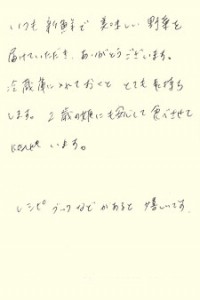 いつも 新鮮で 美味しい 野菜を
届けていただき、ありがとうございます。
冷蔵庫に入れておくと とても 長持ち
します。2歳の娘にも安心して 食べさせて
います。
レシピ ブック などが あると 嬉しいです。